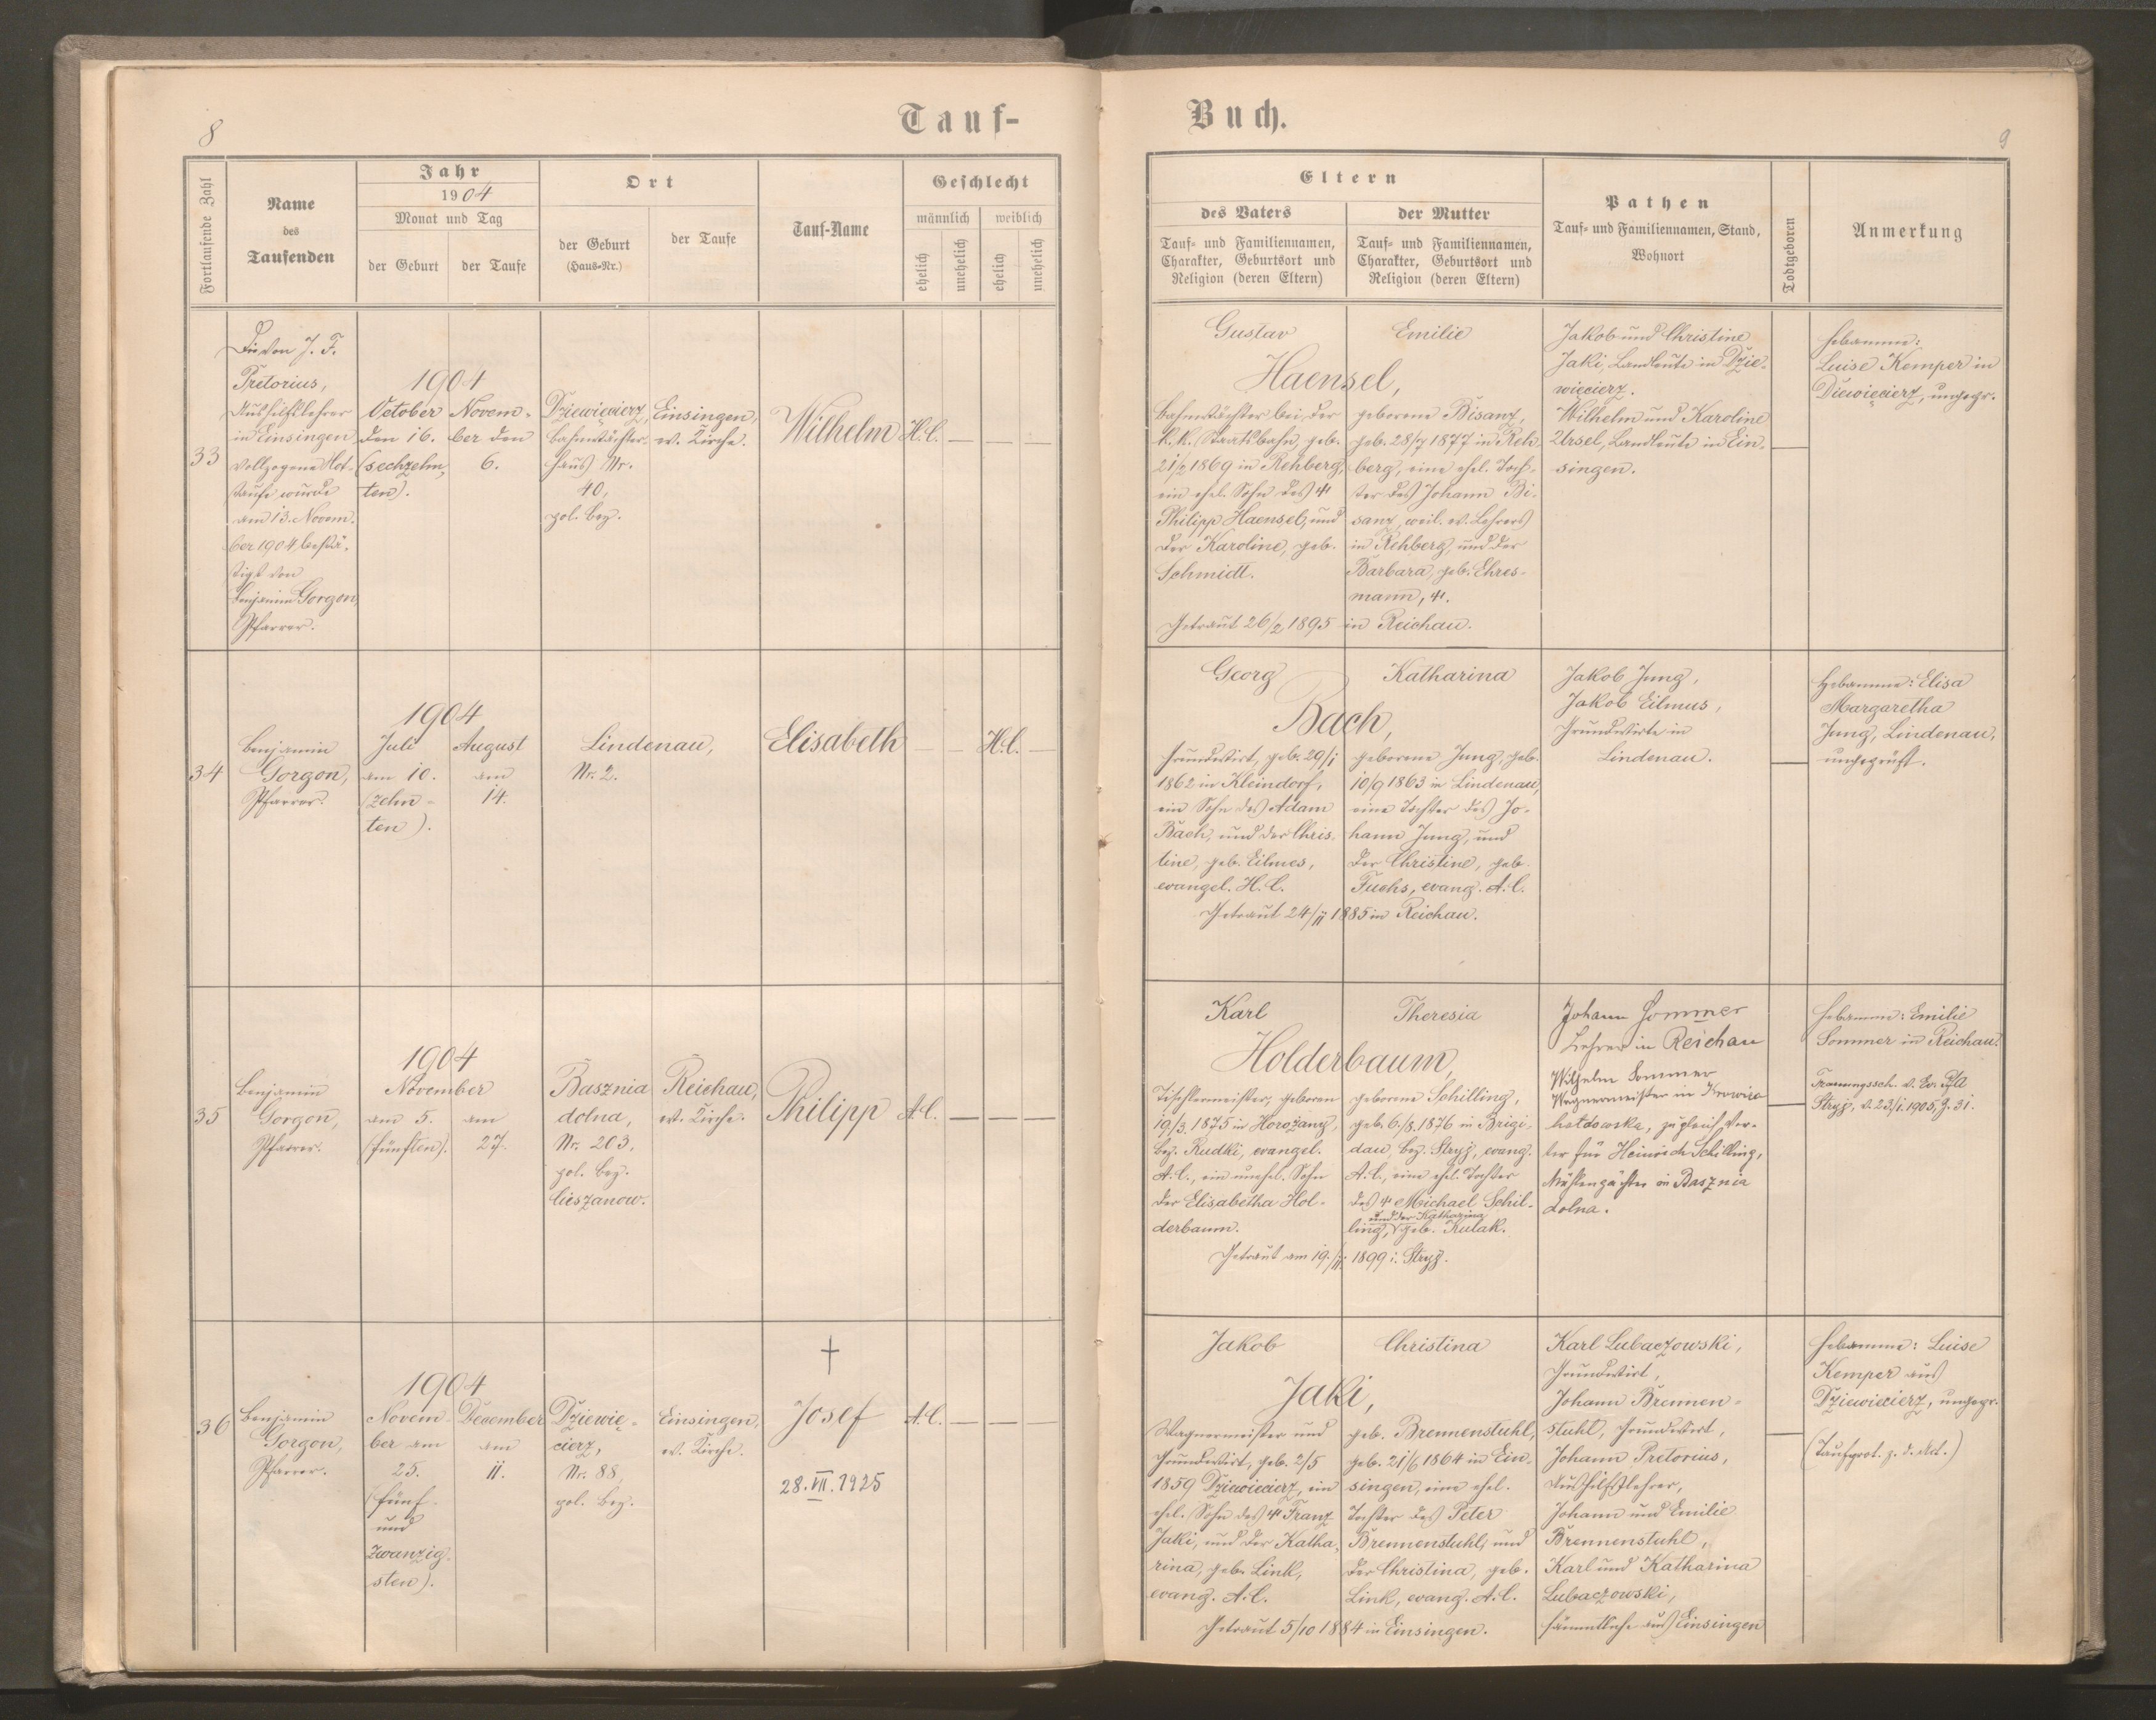 8
Tauf-
Fortlaufende Zahl
Name
des
Taufenden
Jahr
1904
Monat und Tag
der Geburt
der Taufe
Ort
der Geburt
(Haus-Nr.)
der Taufe
Tauf-Name
Geschlecht
männlich
weiblich
ehelich
unehelich
ehelich
unehelich
33
Die von J. F.
Pretorius,
Aushilfslehrer
in Einsingen
vollzogene Not-
taufe wurde
am 13. Novem-
ber 1904 bestä-
tigt von
Benjamin Gorgon,
Pfarrer.
1904
October
den 16.
(sechzehn-
ten).
Novem-
ber den
6.
Dziewięcierz,
Bahnwächter-
haus Nr.
40,
pol. Bez.
Einsingen,
ev. Kirche.
Wilhelm
H.C.
— — —
34
Benjamin
Gorgon,
Pfarrer.
1904
Juli
am 10.
(zehn-
ten).
August
am
14.
Lindenau,
Nr. 2.
Elisabeth
— —
H.C.
—
35
Benjamin
Gorgon,
Pfarrer.
1904
November
am 5.
(fünften).
am
27.
Basznia
dolna,
Nr. 203,
pol. Bez.
Cieszanow.
Reichau,
ev. Kirche.
Philipp
A.C.
— — —
36
Benjamin
Gorgon,
Pfarrer.
1904
Novem-
ber am
25.
(fünf-
und
zwanzig-
sten).
December
am
11.
Dziewię-
cierz,
Nr. 88,
pol. Bez.
Einsingen,
ev. Kirche.
†
Josef
28.VII.1925
A.C.
— — —
Buch.
9
Eltern
des Vaters
Tauf- und Familiennamen,
Charakter, Geburtsort und
Religion (deren Eltern)
der Mutter
Tauf- und Familiennamen,
Charakter, Geburtsort und
Religion (deren Eltern)
Pathen
Tauf- und Familiennamen, Stand,
Wohnort
Todtgeboren
Anmerkung
Gustav
Emilie
Haensel,
Bahnwächter bei der
k. k. Staatsbahn, geb.
21/2 1869 in Rehberg,
ein ehel. Sohn des †
Philipp Haensel, und
der Karoline, geb.
Schmidt.
geborene Bisanz,
geb. 28/7 1877 in Reh-
berg, eine ehel. Toch-
ter des Johann Bi-
sanz, weil. ev. Lehrers
in Rehberg, und der
Barbara, geb. Ehres-
mann, †.
Getraut 26/2 1895 in Reichau.
Jakob und Christine
Jaki, Landleute in Dzie-
więcierz.
Wilhelm und Karoline
Ursel, Landleute in Ein-
singen.
—
Hebamme:
Luise Kemper in
Diewięcierz, ungepr.
Georg
Katharina
Bach,
Grundwirt, geb. 29/1
1862 in Kleindorf,
ein Sohn des Adam
Bach, und der Chris-
tine, geb. Eilmes,
evangel. H.C.
geborene Jung, geb.
10/9 1863 in Lindenau,
eine Tochter des Jo-
hann Jung, und
der Christine, geb.
Fuchs, evang. A.C.
Getraut 24/11 1885 in Reichau.
Jakob Jung,
Jakob Eilmus,
Grundwirte in
Lindenau.
—
Hebamme: Elisa
Margaretha
Jung, Lindenau,
ungeprüft.
Karl
Theresia
Holderbaum,
Tischlermeister, geboren
19/3. 1875 in Horożana,
Bez. Rudki, evangel.
A.C., ein unehel. Sohn
der Elisabetha Hol-
derbaum.
geborene Schilling,
geb. 6./8. 1876 in Brigi-
dau, Bez. Stryj, evang.
A.C., eine ehel. Tochter
des † Michael Schil-
und der Katharina
ling, geb. Kulak.
Getraut am 19./11. 1899 i. Stryj.
Johann Sommer
Lehrer in Reichau
Wilhelm Sommer
Wagnermeister in Krowica
hołdowska, zugleich Ver-
ter für Heinrich Schilling,
Mühlenpächter in Basznia
dolna.
—
Hebamme: Emilie
Sommer in Reichau.
Trauungssch. d. Ev. Pfa
Stryj, d. 23/1. 1905, Z. 31.
Jakob
Christina
Jaki,
Wagnermeister und
Grundwirt, geb. 2/5
1859 Dziewięcierz, ein
ehel. Sohn des † Franz
Jaki, und der Katha-
rina, geb. Link,
evang. A.C.
geb. Brennenstuhl,
geb. 21/6 1864 in Ein-
singen, eine ehel.
Tochter des Peter
Brennenstuhl, und
der Christina, geb.
Link, evang. A.C.
Getraut 5/10 1884 in Einsingen.
Karl Lubaczowski,
Grundwirt,
Johann Brennen-
stuhl, Grundwirt,
Johann Pretorius,
Aushilfslehrer,
Johann und Emilie
Brennenstuhl,
Karl und Katharina
Lubaczowski,
sämmtliche aus Einsingen
—
Hebamme: Luise
Kemper aus
Dziewięcierz, ungepr.
(Taufprot. z. d. Act.)